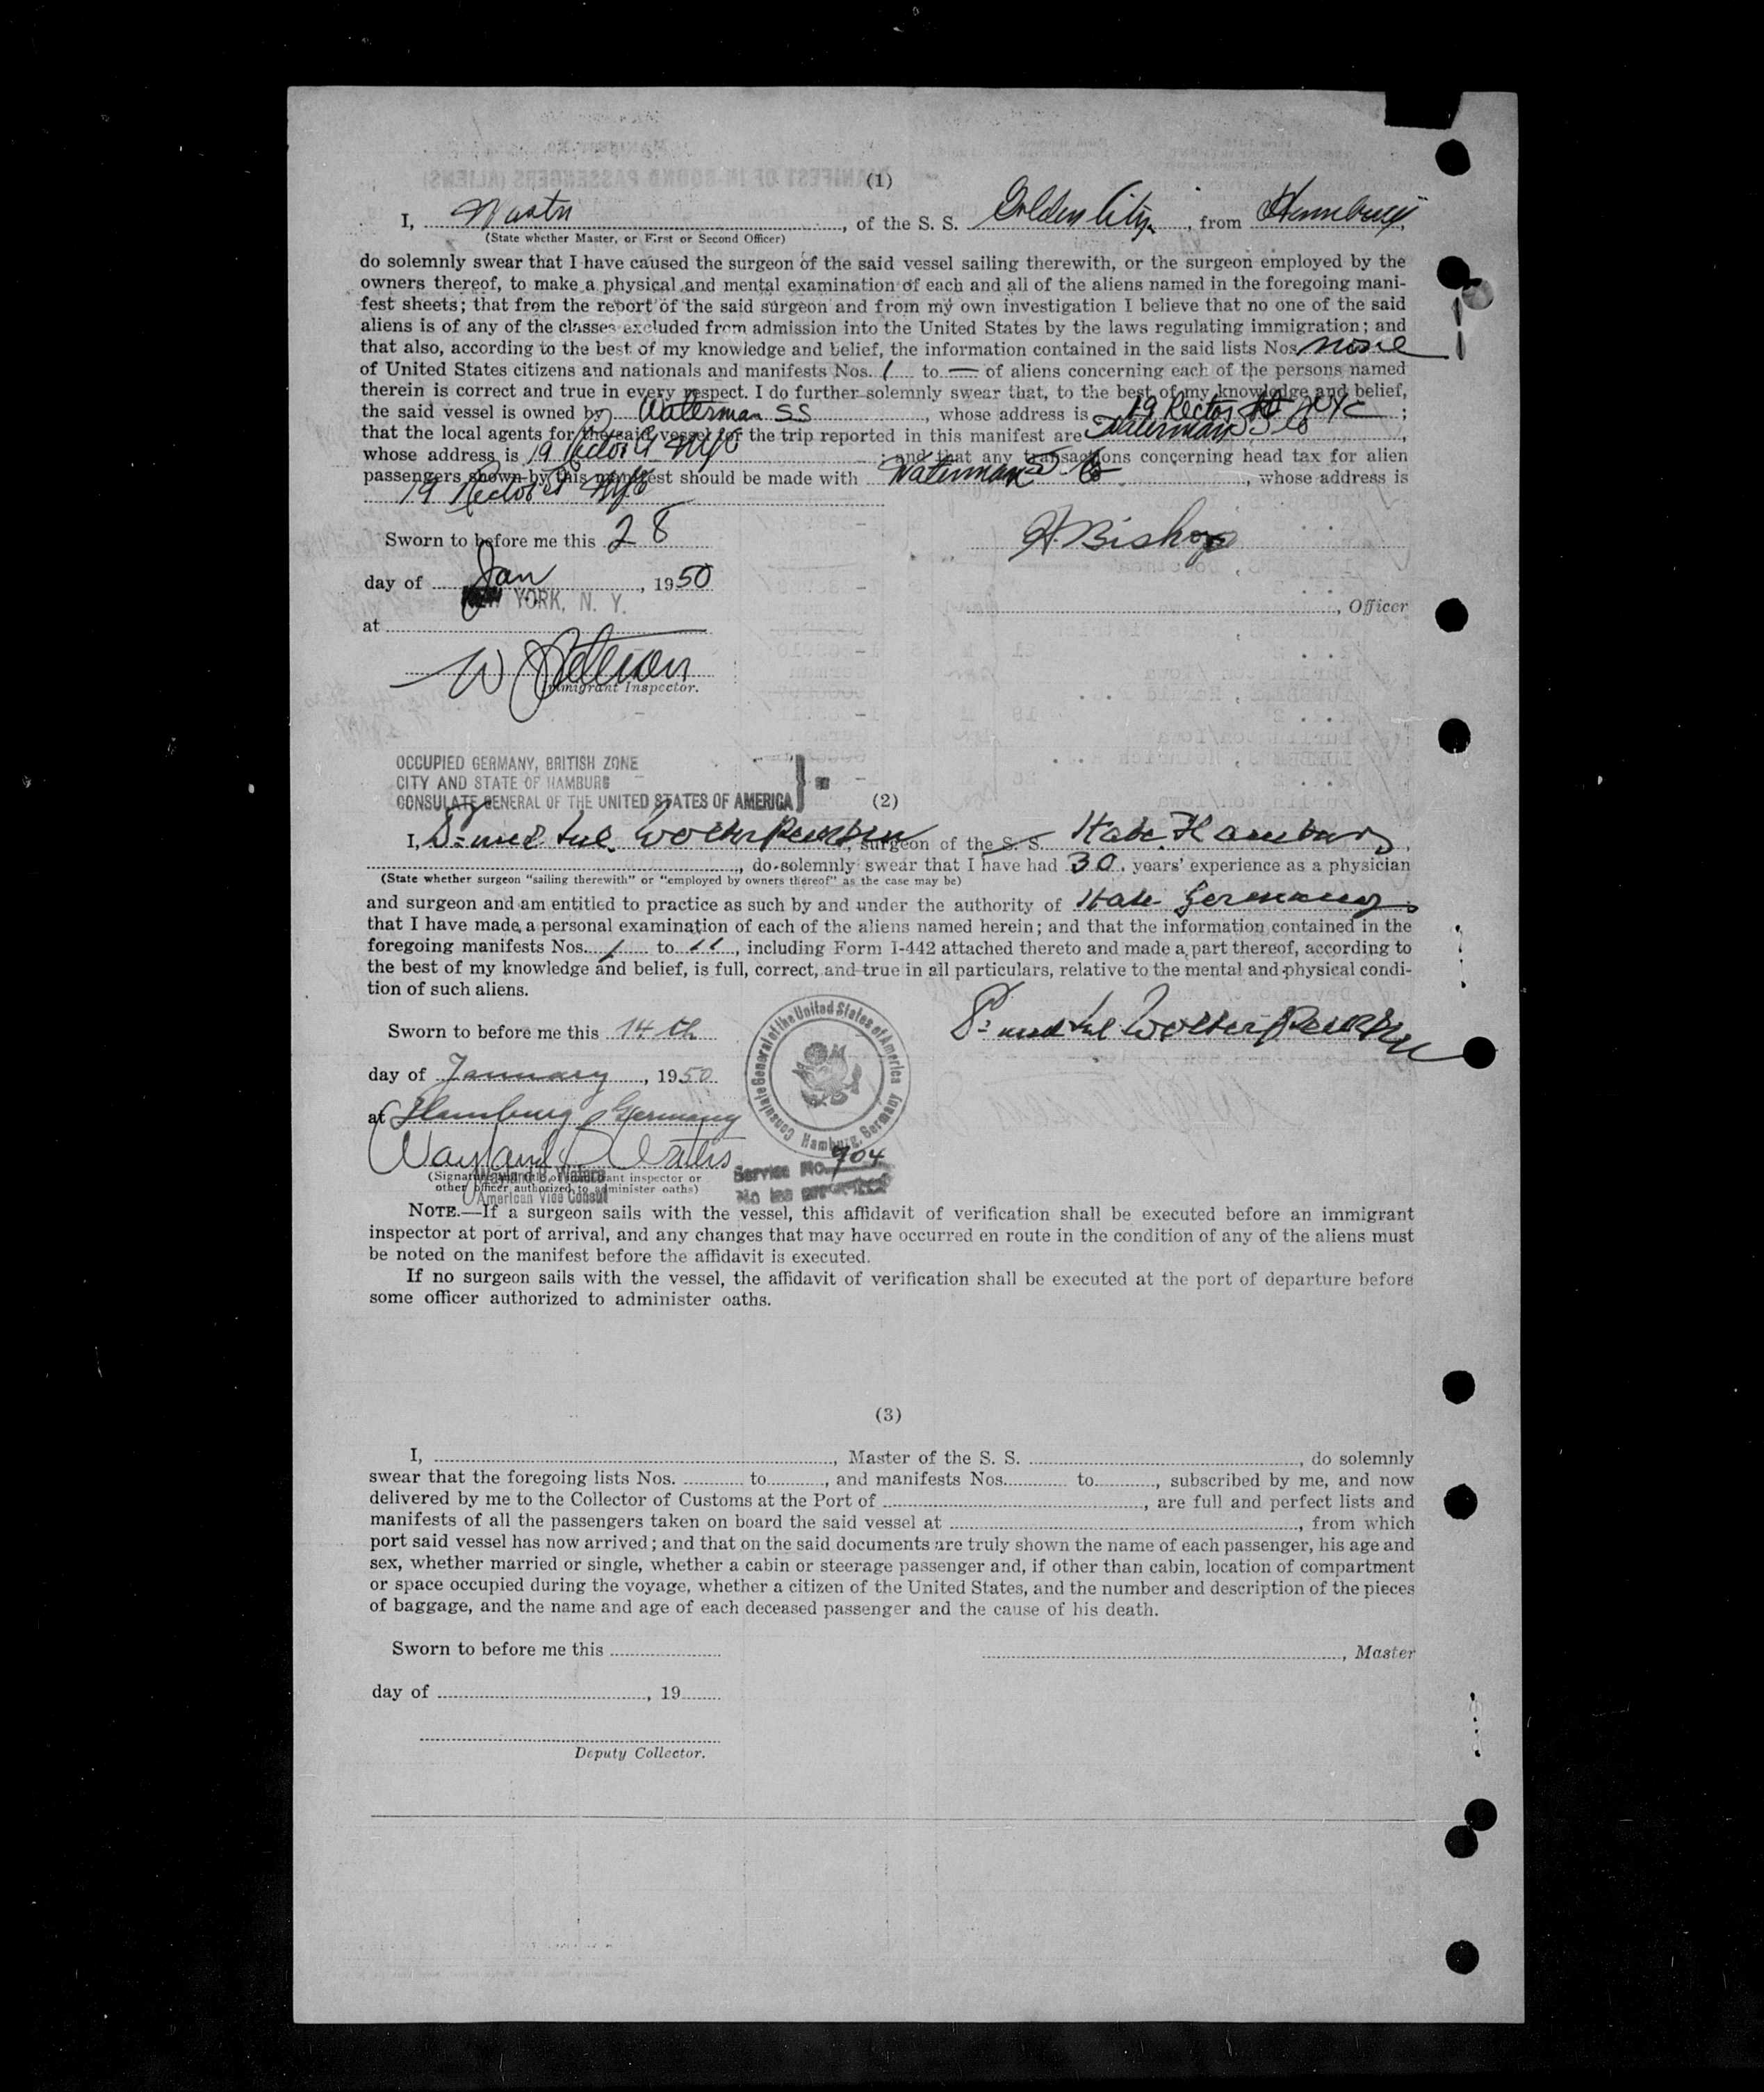 (1)
I, Master, of the S. S. Golden City, from Hamburg,
(State whether Master, or First or Second Officer)
do solemnly swear that I have caused the surgeon of the said vessel sailing therewith, or the surgeon employed by the
owners thereof, to make a physical and mental examination of each and all of the aliens named in the foregoing mani-
fest sheets; that from the report of the said surgeon and from my own investigation I believe that no one of the said
aliens is of any of the classes excluded from admission into the United States by the laws regulating immigration; and
that also, according to the best of my knowledge and belief, the information contained in the said lists Nos. none
of United States citizens and nationals and manifests Nos. 1 to — of aliens concerning each of the persons named
therein is correct and true in every respect. I do further solemnly swear that, to the best of my knowledge and belief,
the said vessel is owned by Waterman SS, whose address is 19 Rector St NYC;
that the local agents for the said vessel for the trip reported in this manifest are Waterman SS Co,
whose address is 19 Rector St NYC; and that any transactions concerning head tax for alien
passengers shown by this manifest should be made with Waterman S Co, whose address is
19 Rector St NYC
Sworn to before me this 28
H. Bishop
day of Jan, 1950
NEW YORK, N. Y.
, Officer
at
W Peterson
Immigrant Inspector.
OCCUPIED GERMANY, BRITISH ZONE
CITY AND STATE OF HAMBURG
CONSULATE GENERAL OF THE UNITED STATES OF AMERICA
(2)
I, Wolter, surgeon of the S. S. State Hamburg,
, do solemnly swear that I have had 30 years' experience as a physician
(State whether surgeon "sailing therewith" or "employed by owners thereof" as the case may be)
and surgeon and am entitled to practice as such by and under the authority of State Germany;
that I have made a personal examination of each of the aliens named herein; and that the information contained in the
foregoing manifests Nos. 1 to 11, including Form I-442 attached thereto and made a part thereof, according to
the best of my knowledge and belief, is full, correct, and true in all particulars, relative to the mental and physical condi-
tion of such aliens.
Sworn to before me this 14th
Wolter
day of January, 1950
Consulate General of the United States of America
Hamburg, Germany
at Hamburg, Germany
Wayland B Waters
(Signature of immigrant inspector or
other officer authorized to administer oaths)
Wayland B. Waters
American Vice Consul
Service No. 904
No fee prescribed
NOTE.—If a surgeon sails with the vessel, this affidavit of verification shall be executed before an immigrant
inspector at port of arrival, and any changes that may have occurred en route in the condition of any of the aliens must
be noted on the manifest before the affidavit is executed.
If no surgeon sails with the vessel, the affidavit of verification shall be executed at the port of departure before
some officer authorized to administer oaths.
(3)
I, , Master of the S. S. , do solemnly
swear that the foregoing lists Nos. to , and manifests Nos. to , subscribed by me, and now
delivered by me to the Collector of Customs at the Port of , are full and perfect lists and
manifests of all the passengers taken on board the said vessel at , from which
port said vessel has now arrived; and that on the said documents are truly shown the name of each passenger, his age and
sex, whether married or single, whether a cabin or steerage passenger and, if other than cabin, location of compartment
or space occupied during the voyage, whether a citizen of the United States, and the number and description of the pieces
of baggage, and the name and age of each deceased passenger and the cause of his death.
Sworn to before me this
, Master
day of , 19
Deputy Collector.